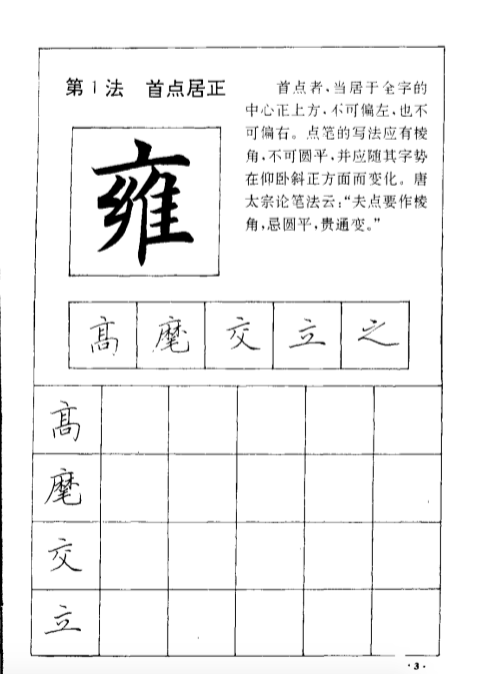 第1法 首点居正
首点者，当居于全字的
中心正上方，不可偏左，也不
可偏右。点笔的写法应有棱
角，不可圆平，并应随其字势
在仰卧斜正方面而变化。唐
太宗论笔法云：“夫点要作棱
角，忌圆平，贵通变。”
雍
髙 麾 交 立 之
髙
麾
交
立
·3·